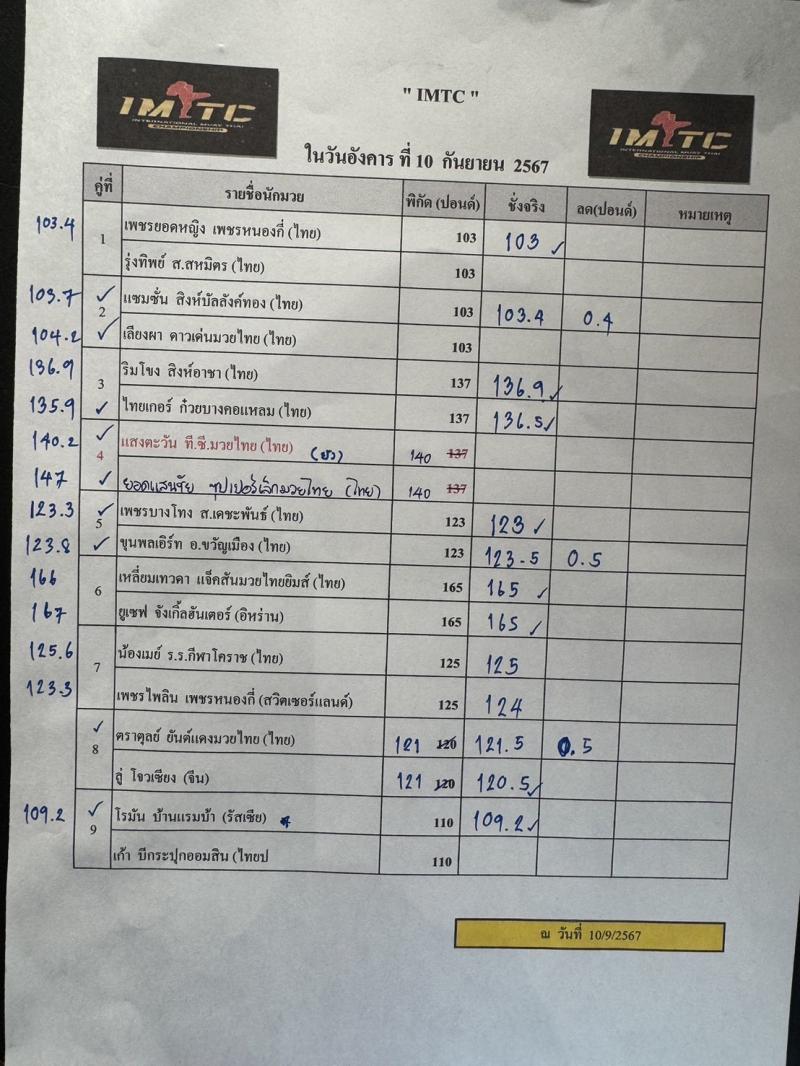 IMTC
INTERNATIONAL MUAY THAI
CHAMPIONSHIP
" IMTC "
IMTC
INTERNATIONAL MUAY THAI
CHAMPIONSHIP
ในวันอังคาร ที่ 10 กันยายน 2567
คู่ที่ รายชื่อนักมวย พิกัด (ปอนด์) ชั่งจริง ลด(ปอนด์) หมายเหตุ
103.4 1 เพชรยอดหญิง เพชรหนองกี่ (ไทย) 103 103 ✓
รุ่งทิพย์ ส.สหมิตร (ไทย) 103
103.7 ✓ 2 แซมชั่น สิงห์บัลลังค์ทอง (ไทย) 103 103.4 0.4
104.2 ✓ เลียงผา ดาวเด่นมวยไทย (ไทย) 103
136.9 3 ริมโขง สิงห์อาชา (ไทย) 137 136.9 ✓
135.9 ✓ ไทยเกอร์ ก๋วยบางคอแหลม (ไทย) 137 136.5 ✓
140.2 ✓ 4 แสงตะวัน ที.ซี.มวยไทย (ไทย) 140 137
147 ✓ ยอดแสนชัย ซุปเปอร์เล็กมวยไทย (ไทย) 140 137
123.3 ✓ 5 เพชรบางโทง ส.เดชะพันธ์ (ไทย) 123 123 ✓
123.8 ✓ ขุนพลเอิร์ท อ.ขวัญเมือง (ไทย) 123 123.5 0.5
166 6 เหลี่ยมเทวดา แจ็คสันมวยไทยยิมส์ (ไทย) 165 165 ✓
167 ยูเซฟ จังเกิ้ลฮันเตอร์ (อิหร่าน) 165 165 ✓
125.6 7 น้องเมย์ ร.ร.กีฬาโคราช (ไทย) 125 125
123.3 เพชรไพลิน เพชรหนองกี่ (สวิตเซอร์แลนด์) 125 124
✓ 8 ตราตุลย์ ยันต์แดงมวยไทย (ไทย) 121 120 121.5 0.5
ลู่ โจวเซียง (จีน) 121 120 120.5 ✓
109.2 ✓ 9 โรมัน บ้านแรมบ้า (รัสเซีย) 110 109.2 ✓
เก้า บีกระปุกออมสิน (ไทยป 110
ณ วันที่ 10/9/2567